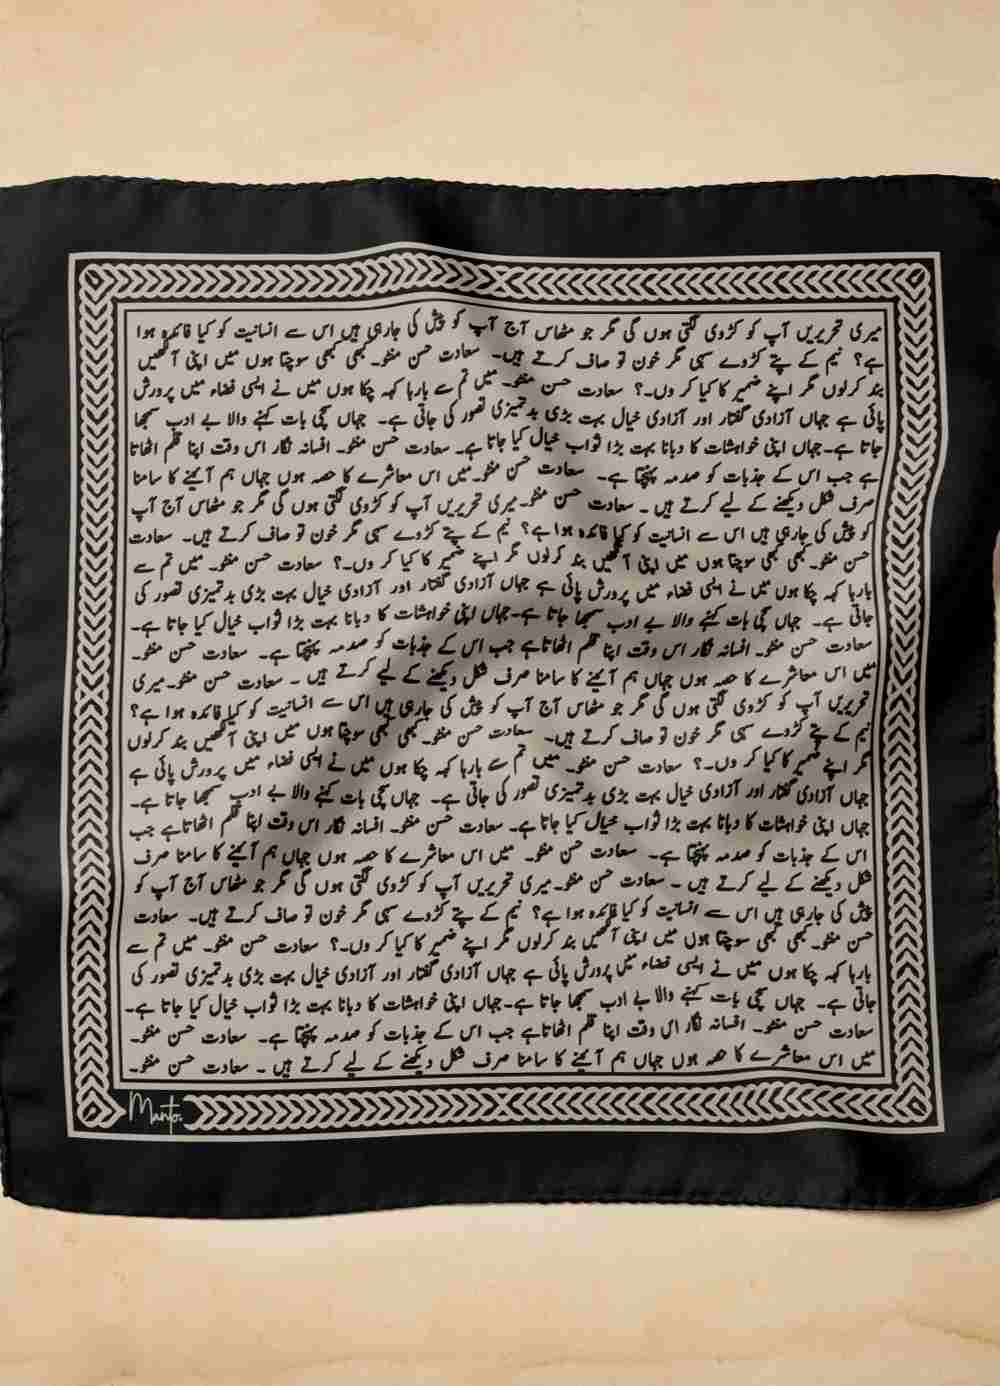 میری تحریریں آپ کو کڑوی لگتی ہوں گی مگر جو مٹھاس آج آپ کو پیش کی جارہی ہیں اس سے انسانیت کو کیا فائدہ ہوا
ہے؟ نیم کے پتے کڑوے سہی مگر خون تو صاف کرتے ہیں۔ سعادت حسن منٹو۔ کبھی کبھی سوچتا ہوں میں اپنی آنکھیں
بند کرلوں مگر اپنے ضمیر کا کیا کر وں۔؟ سعادت حسن منٹو۔ میں تم سے بارہا کہہ چکا ہوں میں نے ایسی فضاء میں پرورش
پائی ہے جہاں آزادی گفتار اور آزادی خیال بہت بڑی بدتمیزی تصور کی جاتی ہے۔ جہاں سچی بات کہنے والا بے ادب سمجھا
جاتا ہے۔جہاں اپنی خواہشات کا دبانا بہت بڑا ثواب خیال کیا جاتا ہے۔ سعادت حسن منٹو۔ افسانہ نگار اس وقت اپنا قلم اٹھاتا
ہے جب اس کے جذبات کو صدمہ پہنچتا ہے۔ سعادت حسن منٹو۔میں اس معاشرے کا حصہ ہوں جہاں ہم آئینے کا سامنا
صرف شکل دیکھنے کے لیے کرتے ہیں ۔ سعادت حسن منٹو۔میری تحریریں آپ کو کڑوی لگتی ہوں گی مگر جو مٹھاس آج آپ
کو پیش کی جارہی ہیں اس سے انسانیت کو کیا فائدہ ہوا ہے؟ نیم کے پتے کڑوے سہی مگر خون تو صاف کرتے ہیں۔ سعادت
حسن منٹو۔ کبھی کبھی سوچتا ہوں میں اپنی آنکھیں بند کرلوں مگر اپنے ضمیر کا کیا کر وں۔؟ سعادت حسن منٹو۔ میں تم سے
بارہا کہہ چکا ہوں میں نے ایسی فضاء میں پرورش پائی ہے جہاں آزادی گفتار اور آزادی خیال بہت بڑی بدتمیزی تصور کی
جاتی ہے۔ جہاں سچی بات کہنے والا بے ادب سمجھا جاتا ہے۔جہاں اپنی خواہشات کا دبانا بہت بڑا ثواب خیال کیا جاتا ہے۔
سعادت حسن منٹو۔ افسانہ نگار اس وقت اپنا قلم اٹھاتاہے جب اس کے جذبات کو صدمہ پہنچتا ہے۔ سعادت حسن منٹو۔
میں اس معاشرے کا حصہ ہوں جہاں ہم آئینے کا سامنا صرف شکل دیکھنے کے لیے کرتے ہیں ۔ سعادت حسن منٹو۔میری
تحریریں آپ کو کڑوی لگتی ہوں گی مگر جو مٹھاس آج آپ کو پیش کی جارہی ہیں اس سے انسانیت کو کیا فائدہ ہوا ہے؟
نیم کے پتے کڑوے سہی مگر خون تو صاف کرتے ہیں۔ سعادت حسن منٹو۔ کبھی کبھی سوچتا ہوں میں اپنی آنکھیں بند کرلوں
مگر اپنے ضمیر کا کیا کر وں۔؟ سعادت حسن منٹو۔ میں تم سے بارہا کہہ چکا ہوں میں نے ایسی فضاء میں پرورش پائی ہے
جہاں آزادی گفتار اور آزادی خیال بہت بڑی بدتمیزی تصور کی جاتی ہے۔ جہاں سچی بات کہنے والا بے ادب سمجھا جاتا ہے۔
جہاں اپنی خواہشات کا دبانا بہت بڑا ثواب خیال کیا جاتا ہے۔ سعادت حسن منٹو۔ افسانہ نگار اس وقت اپنا قلم اٹھاتاہے جب
اس کے جذبات کو صدمہ پہنچتا ہے۔ سعادت حسن منٹو۔ میں اس معاشرے کا حصہ ہوں جہاں ہم آئینے کا سامنا صرف
شکل دیکھنے کے لیے کرتے ہیں ۔ سعادت حسن منٹو۔میری تحریریں آپ کو کڑوی لگتی ہوں گی مگر جو مٹھاس آج آپ کو
پیش کی جارہی ہیں اس سے انسانیت کو کیا فائدہ ہوا ہے؟ نیم کے پتے کڑوے سہی مگر خون تو صاف کرتے ہیں۔ سعادت
حسن منٹو۔ کبھی کبھی سوچتا ہوں میں اپنی آنکھیں بند کرلوں مگر اپنے ضمیر کا کیا کر وں۔؟ سعادت حسن منٹو۔ میں تم سے
بارہا کہہ چکا ہوں میں نے ایسی فضاء میں پرورش پائی ہے جہاں آزادی گفتار اور آزادی خیال بہت بڑی بدتمیزی تصور کی
جاتی ہے۔ جہاں سچی بات کہنے والا بے ادب سمجھا جاتا ہے۔جہاں اپنی خواہشات کا دبانا بہت بڑا ثواب خیال کیا جاتا ہے۔
سعادت حسن منٹو۔ افسانہ نگار اس وقت اپنا قلم اٹھاتاہے جب اس کے جذبات کو صدمہ پہنچتا ہے۔ سعادت حسن منٹو۔
میں اس معاشرے کا حصہ ہوں جہاں ہم آئینے کا سامنا صرف شکل دیکھنے کے لیے کرتے ہیں ۔ سعادت حسن منٹو۔
Manto.